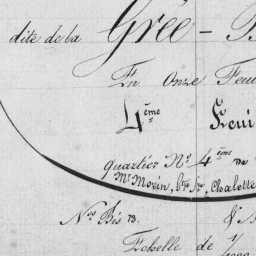 dite de la Grée -
En Onze Feui
4ème Feui
Quartier No. 4ème
Mr. Morin, Chalette
Nos Bis 73.
Echelle de